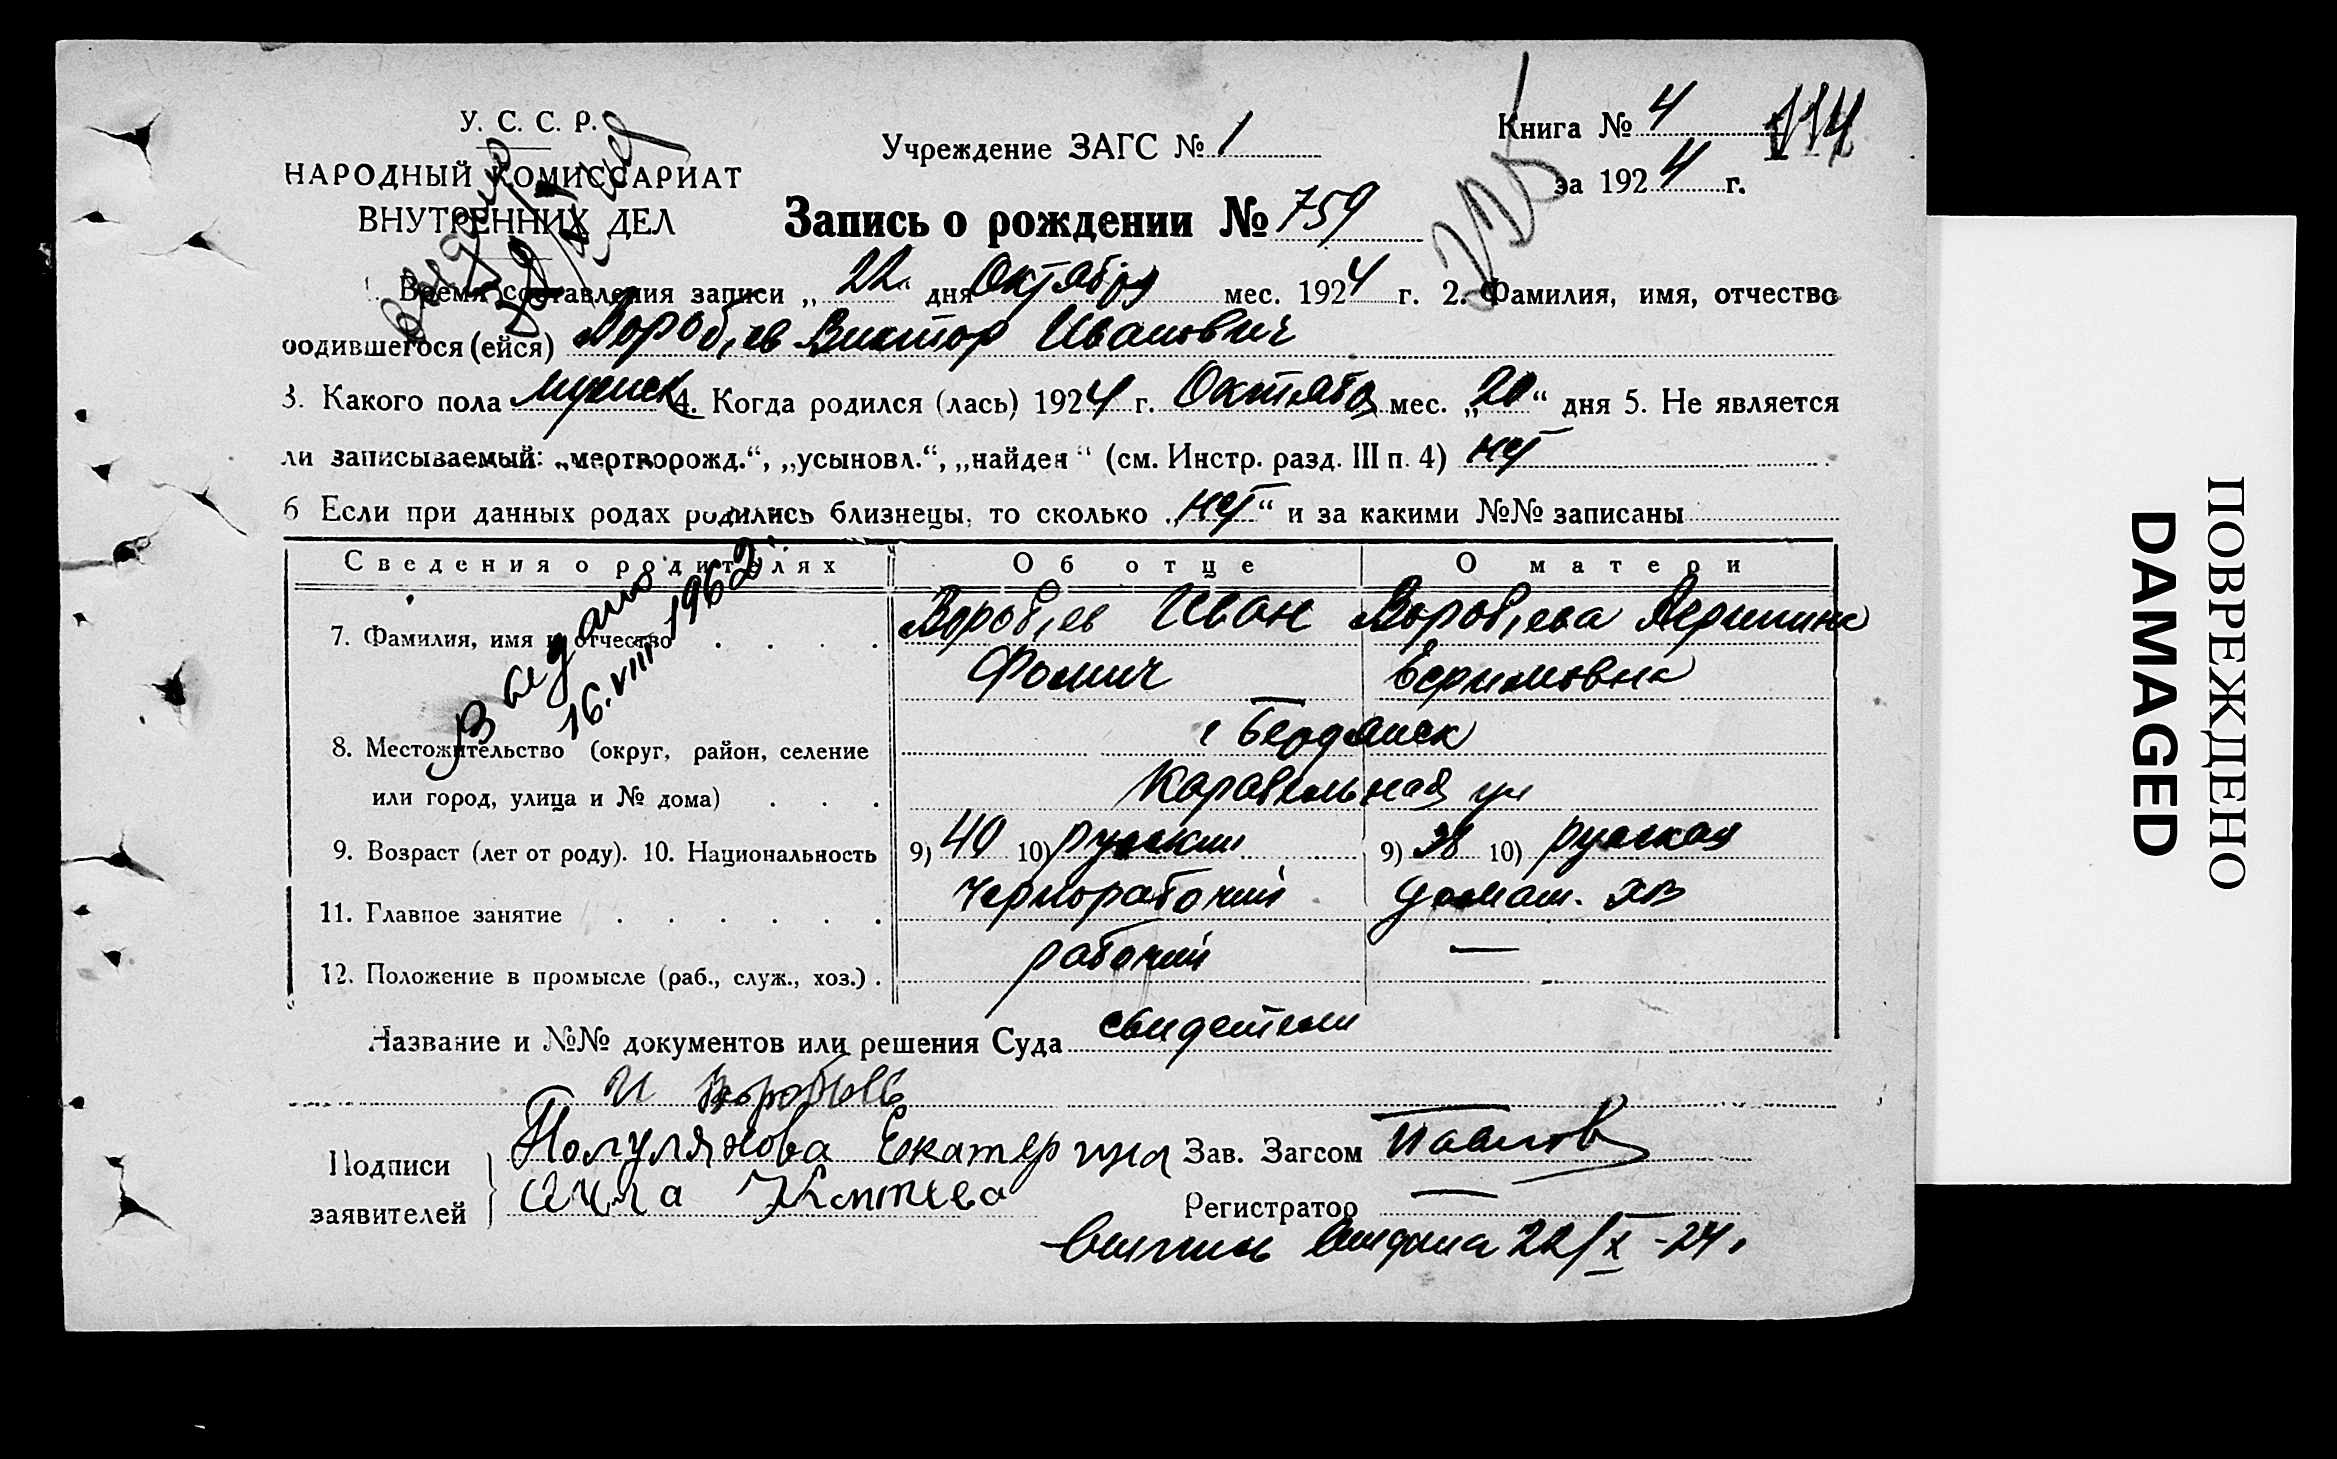 У. С. С. Р.
НАРОДНЫЙ КОМИССАРИАТ
ВНУТРЕННИХ ДЕЛ
Учреждение ЗАГС № 1
Книга № 4 114
за 1924 г.
Запись о рождении № 759
Время составления записи „22" дня Октября мес. 1924 г. 2. Фамилия, имя, отчество
родившегося (ейся) Вороб,ев Виктор Иванович
3. Какого пола мужск 4. Когда родился (лась) 1924 г. Октября мес. „20“ дня 5. Не является
ли записываемый: „мертворожд.“, „усыновл.“, „найден“ (см. Инстр. разд. III п. 4) нет
6 Если при данных родах родились близнецы, то сколько „нет“ и за какими №№ записаны
Сведения о родителях Об отце О матери
7. Фамилия, имя и отчество Вороб,ев Иван Вороб,ева
Фомич
Выдано
16.VIII 1962.
8. Местожительство (округ, район, селение г Бердянск
или город, улица и № дома) Карабельная ул
9. Возраст (лет от роду). 10. Национальность 9) 40 10) русский 9) 38 10) русская
11. Главное занятие Чернорабочий домаш. хв
12. Положение в промысле (раб., служ., хоз.) рабочий —
Название и №№ документов или решения Суда свидетели
И Воробьев
Подписи Полулянова Екатерина Зав. Загсом Павлов
заявителей Регистратор
выпись выдана 22/X-24.
ПОВРЕЖДЕНО
DAMAGED